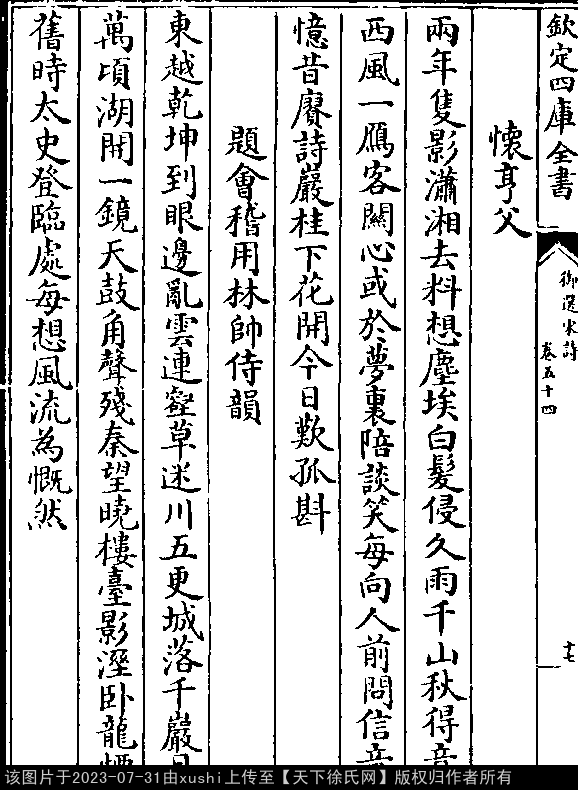 欽定四庫全書
御選宋詩
卷五十四
懷亨父
兩年隻影瀟湘去料想塵埃白髮侵久雨千山秋得
西風一鴈客關心或於夢裏陪談笑每向人前問信音
憶昔賡詩巖桂下花開今日歎孤斟
題會稽用林帥侍韻
東越乾坤到眼邊亂雲連壑草迷川五更城落千巖月
萬頃湖開一鏡天鼓角聲殘秦望曉樓臺影溼卧龍煙
舊時太史登臨處每想風流為慨然
该图片于2023-07-31由xushi上传至【天下徐氏网】版权归作者所有